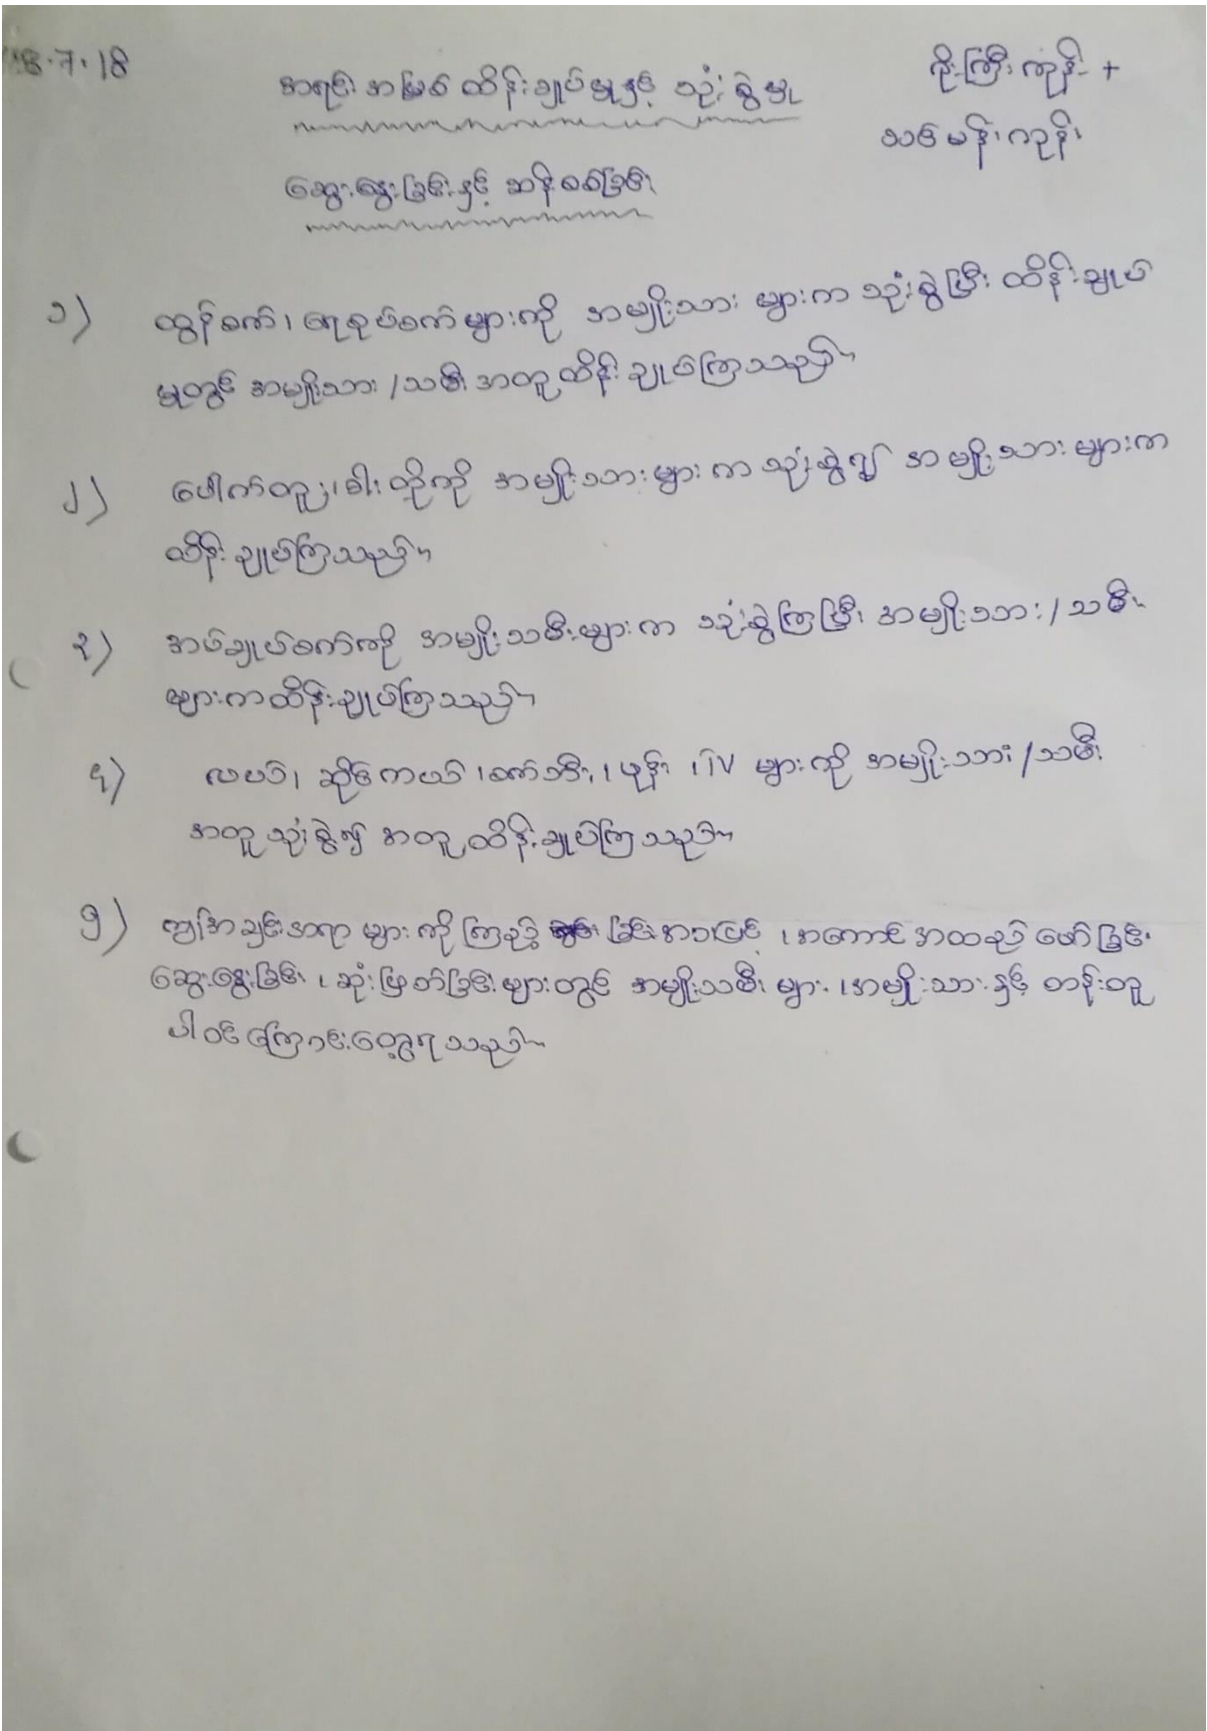 28.7.18
အရင်းအမြစ် ထိန်းချုပ်မှုနှင့် သုံးစွဲမှု
ဖိုးကြီးကုန်း +
သင်မန်းကုန်း
ဆွေးနွေးခြင်းနှင့် ဆန်းစစ်ခြင်း
၁) ထွန်စက်၊ ရေစုပ်စက်များကို အမျိုးသား များက သုံးစွဲပြီး ထိန်းချုပ်
မှုတွင် အမျိုးသား /သမီး အတူ ထိန်းချုပ်ကြသည်။
၂) ပေါက်တူး၊ ဓါးတို့ကို အမျိုးသားများ က သုံးစွဲ၍ အမျိုးသား များက
ထိန်းချုပ်ကြသည်။
၃) အပ်ချုပ်စက်ကို အမျိုးသမီးများက သုံးစွဲကြပြီး အမျိုးသား / သမီး
များကထိန်းချုပ်ကြသည်။
၄) လယ်၊ ဆိုင်ကယ် ၊စက်ဘီး၊ ဖုန်း ၊ TV များကို အမျိုးသား /သမီး
အတူ သုံးစွဲ၍ အတူ ထိန်းချုပ်ကြသည်။
၅) ဤအချင်းအရာ များ ကို ကြည့် ခြင်းအားဖြင့် ၊အကောင်အထည် ဖော်ခြင်း
ဆွေးနွေးခြင်း ၊ ဆုံးဖြတ်ခြင်းများတွင် အမျိုးသမီး များ ၊အမျိုးသား နှင့် တန်းတူ
ပါဝင်ကြောင်းတွေ့ရသည်။